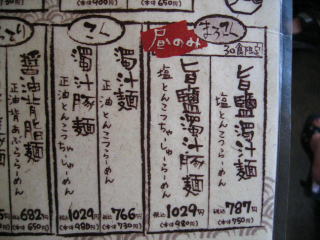 昼のみ
まろこく
30食限定
旨鹽濁汁麺
塩とんこつらーめん
税込 787円
(本体 750円)
旨鹽濁汁豚麺
塩とんこつちゃーしゅーめん
税込 1029円
(本体 980円)
こく
濁汁麺
正油とんこつらーめん
税込 766円
(本体 730円)
濁汁豚麺
正油とんこつちゃーしゅーめん
税込 1029円
(本体 980円)
醤油背脂麺
正油背あぶららーめん
税込 682円
(本体 650円)